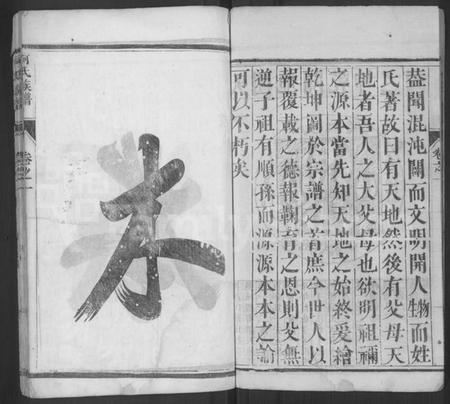 盖聞混沌闢而文明開人物而姓
氏著故曰有天地然後有父母天
地者吾人之大父母也欲明祖禰
之源本當先知天地之始終爰繪
乾坤圖於宗譜之首庶令世人以
報覆載之德報鞠育之恩則父無
逆子祖有順孫而源源本本之論
可以不朽矣
卷之
本
何氏族譜
卷之一